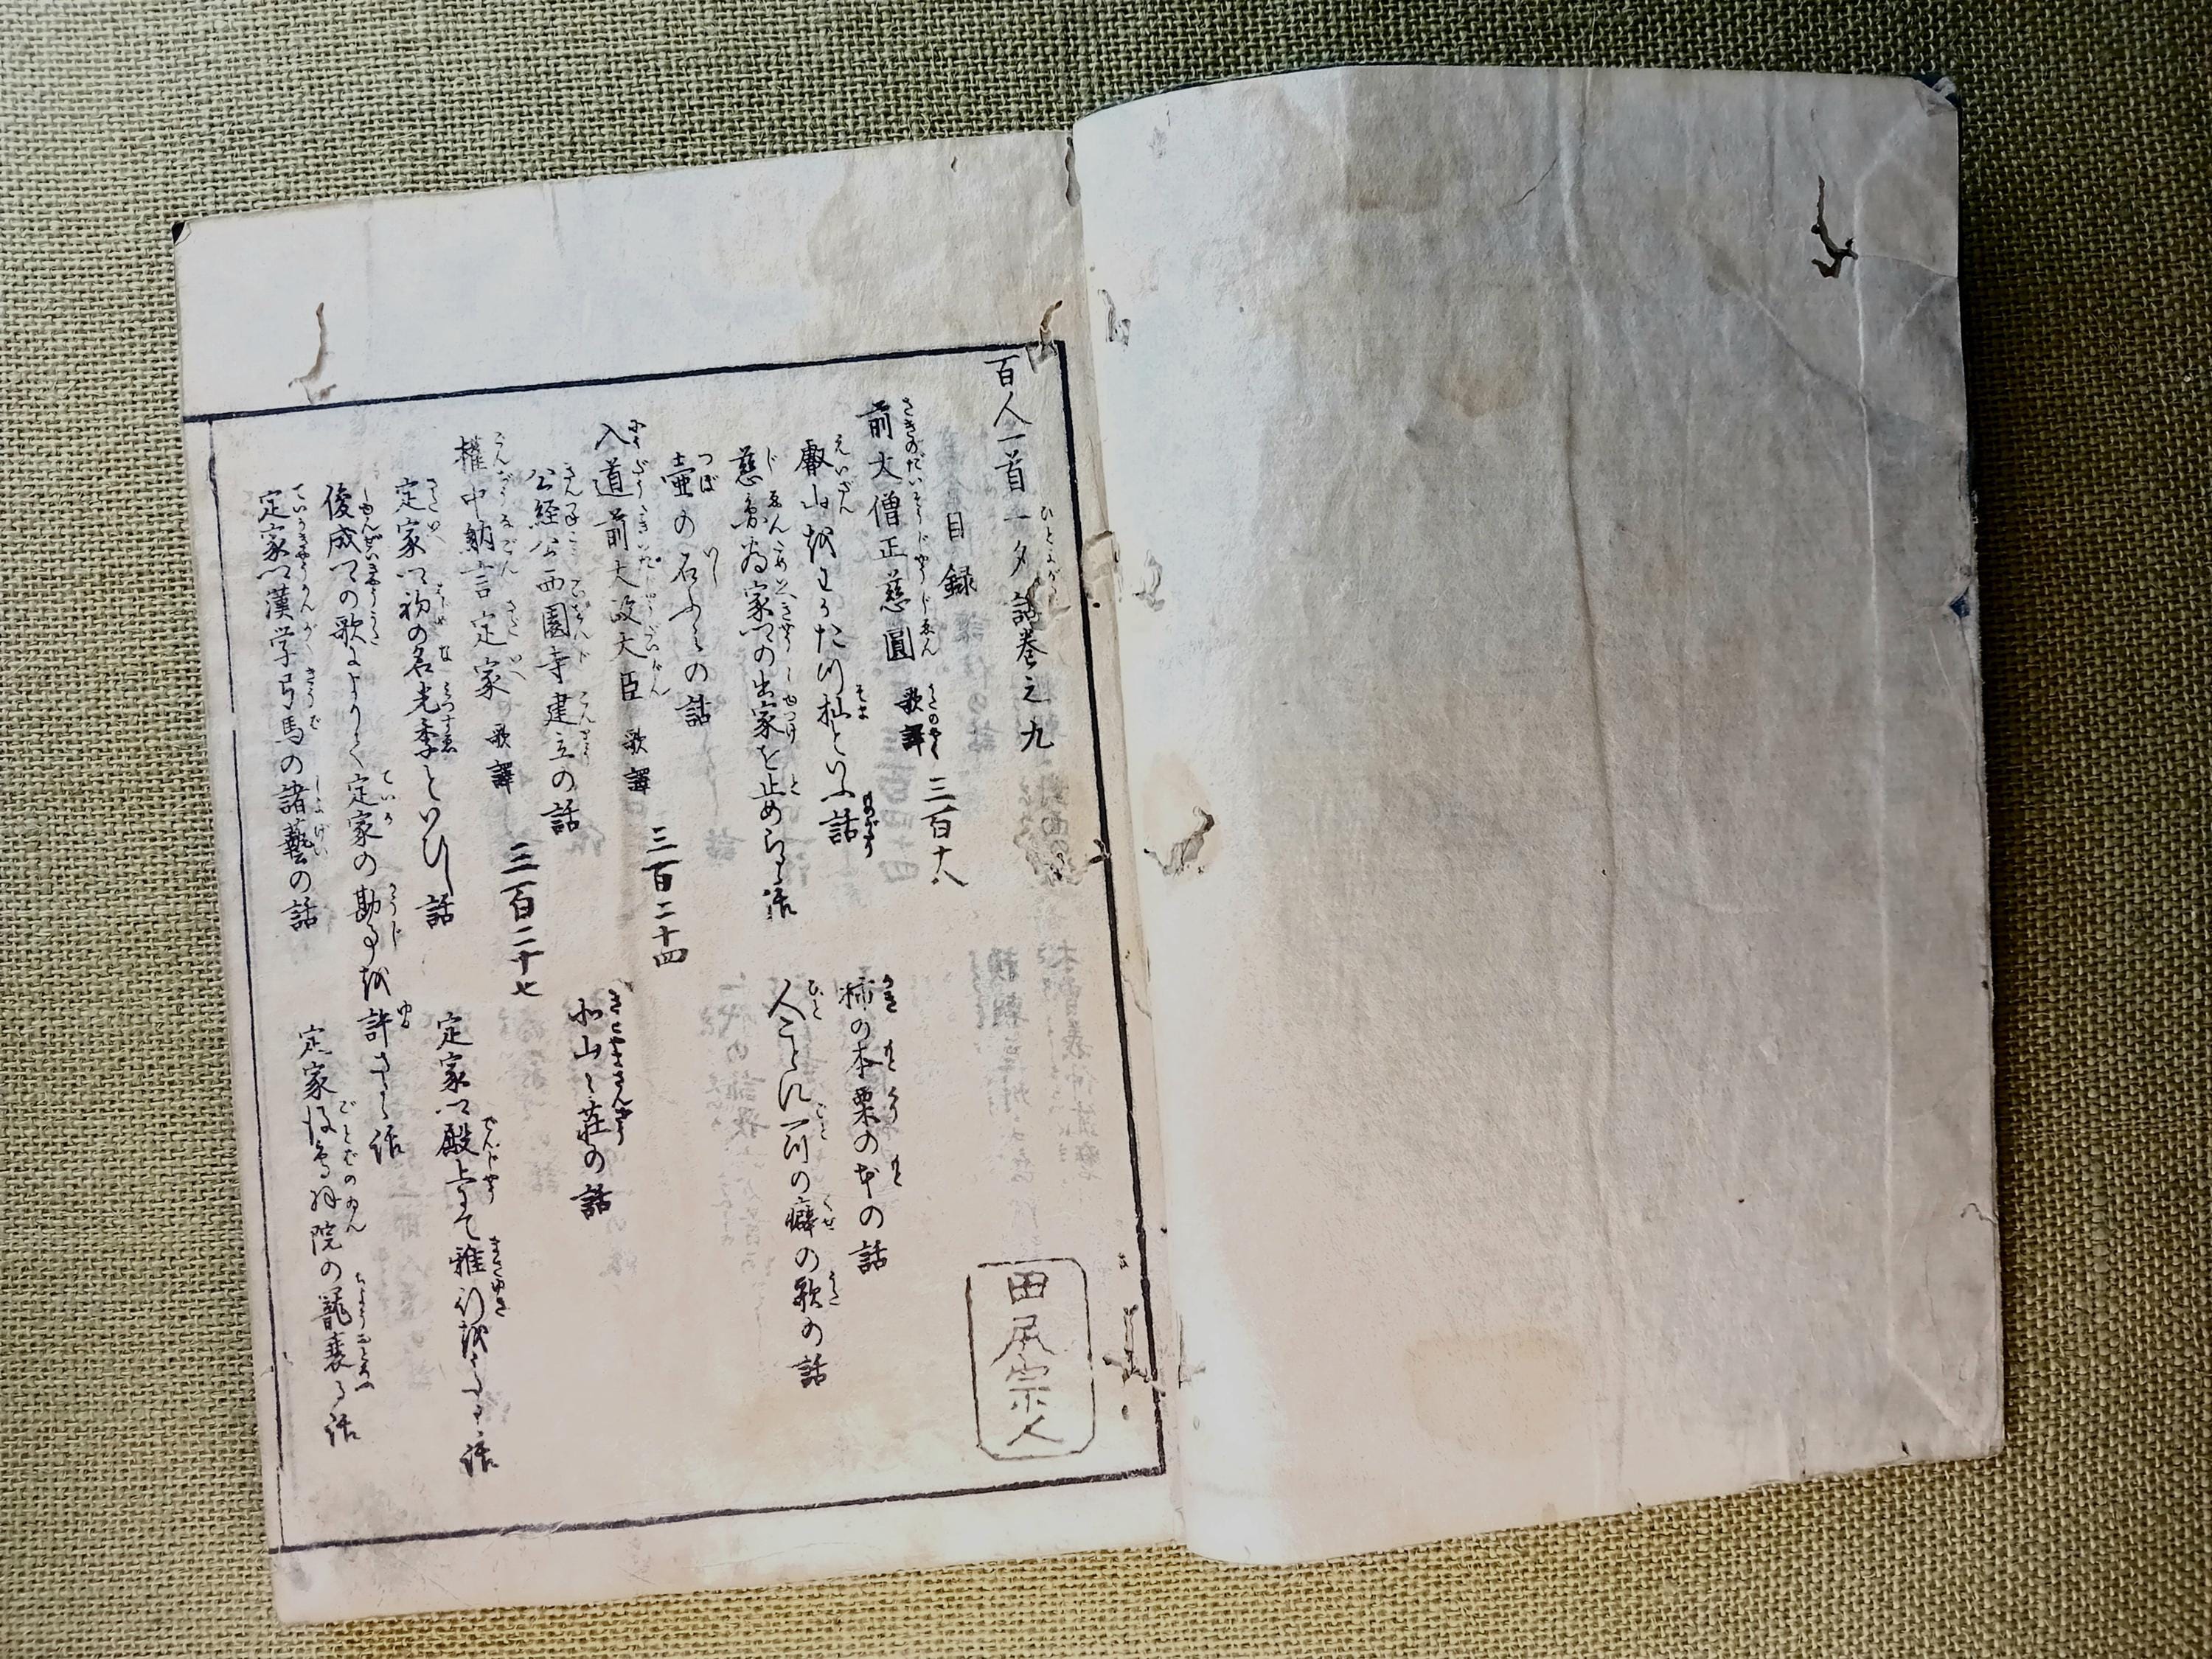 百人一首一夕話巻之九
目録
前大僧正慈圓 歌譯 三百十八
叡山をわがたつ杣といふ話 柿の本栗の本の話
慈鎮為家卿の出家を止めらるゝ話 人ごとに一つの癖の歌の話
壷の石ふみの話
入道前大政大臣 歌譯 三百二十四
公経公西園寺建立の話 北山山荘の話
権中納言定家 歌譯 三百二十七
定家卿初の名光季といひし話 定家卿殿上にて雅行を話
俊成卿の歌によりて定家の勘事を許さるゝ話
定家卿漢学弓馬の諸藝の話 定家後鳥羽院の寵衰る話
田尻宗人